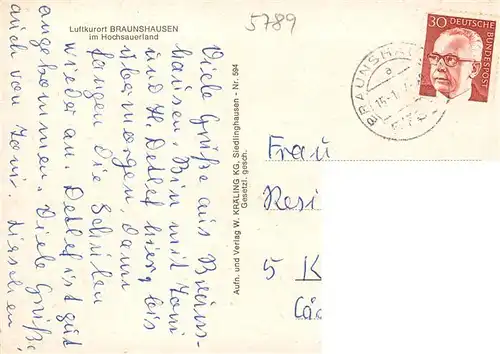 Luftkurort BRAUNSHAUSEN
im Hochsauerland
5789
Viele Grüße aus Brauns-
hausen. Bin mit Toni
und H. Detlef hier, bis
übermorgen, dann
fangen die Schulen
wieder an. Detlef ist gut
angekommen. Viele Grüße,
auch von Toni
Aufn. und Verlag W. KRÄLING KG, Siedlinghausen - Nr. 594
Gesetzl. gesch.
30 DEUTSCHE
BUNDESPOST
BRAUNSHAU
a
Frau
Resi
5 K